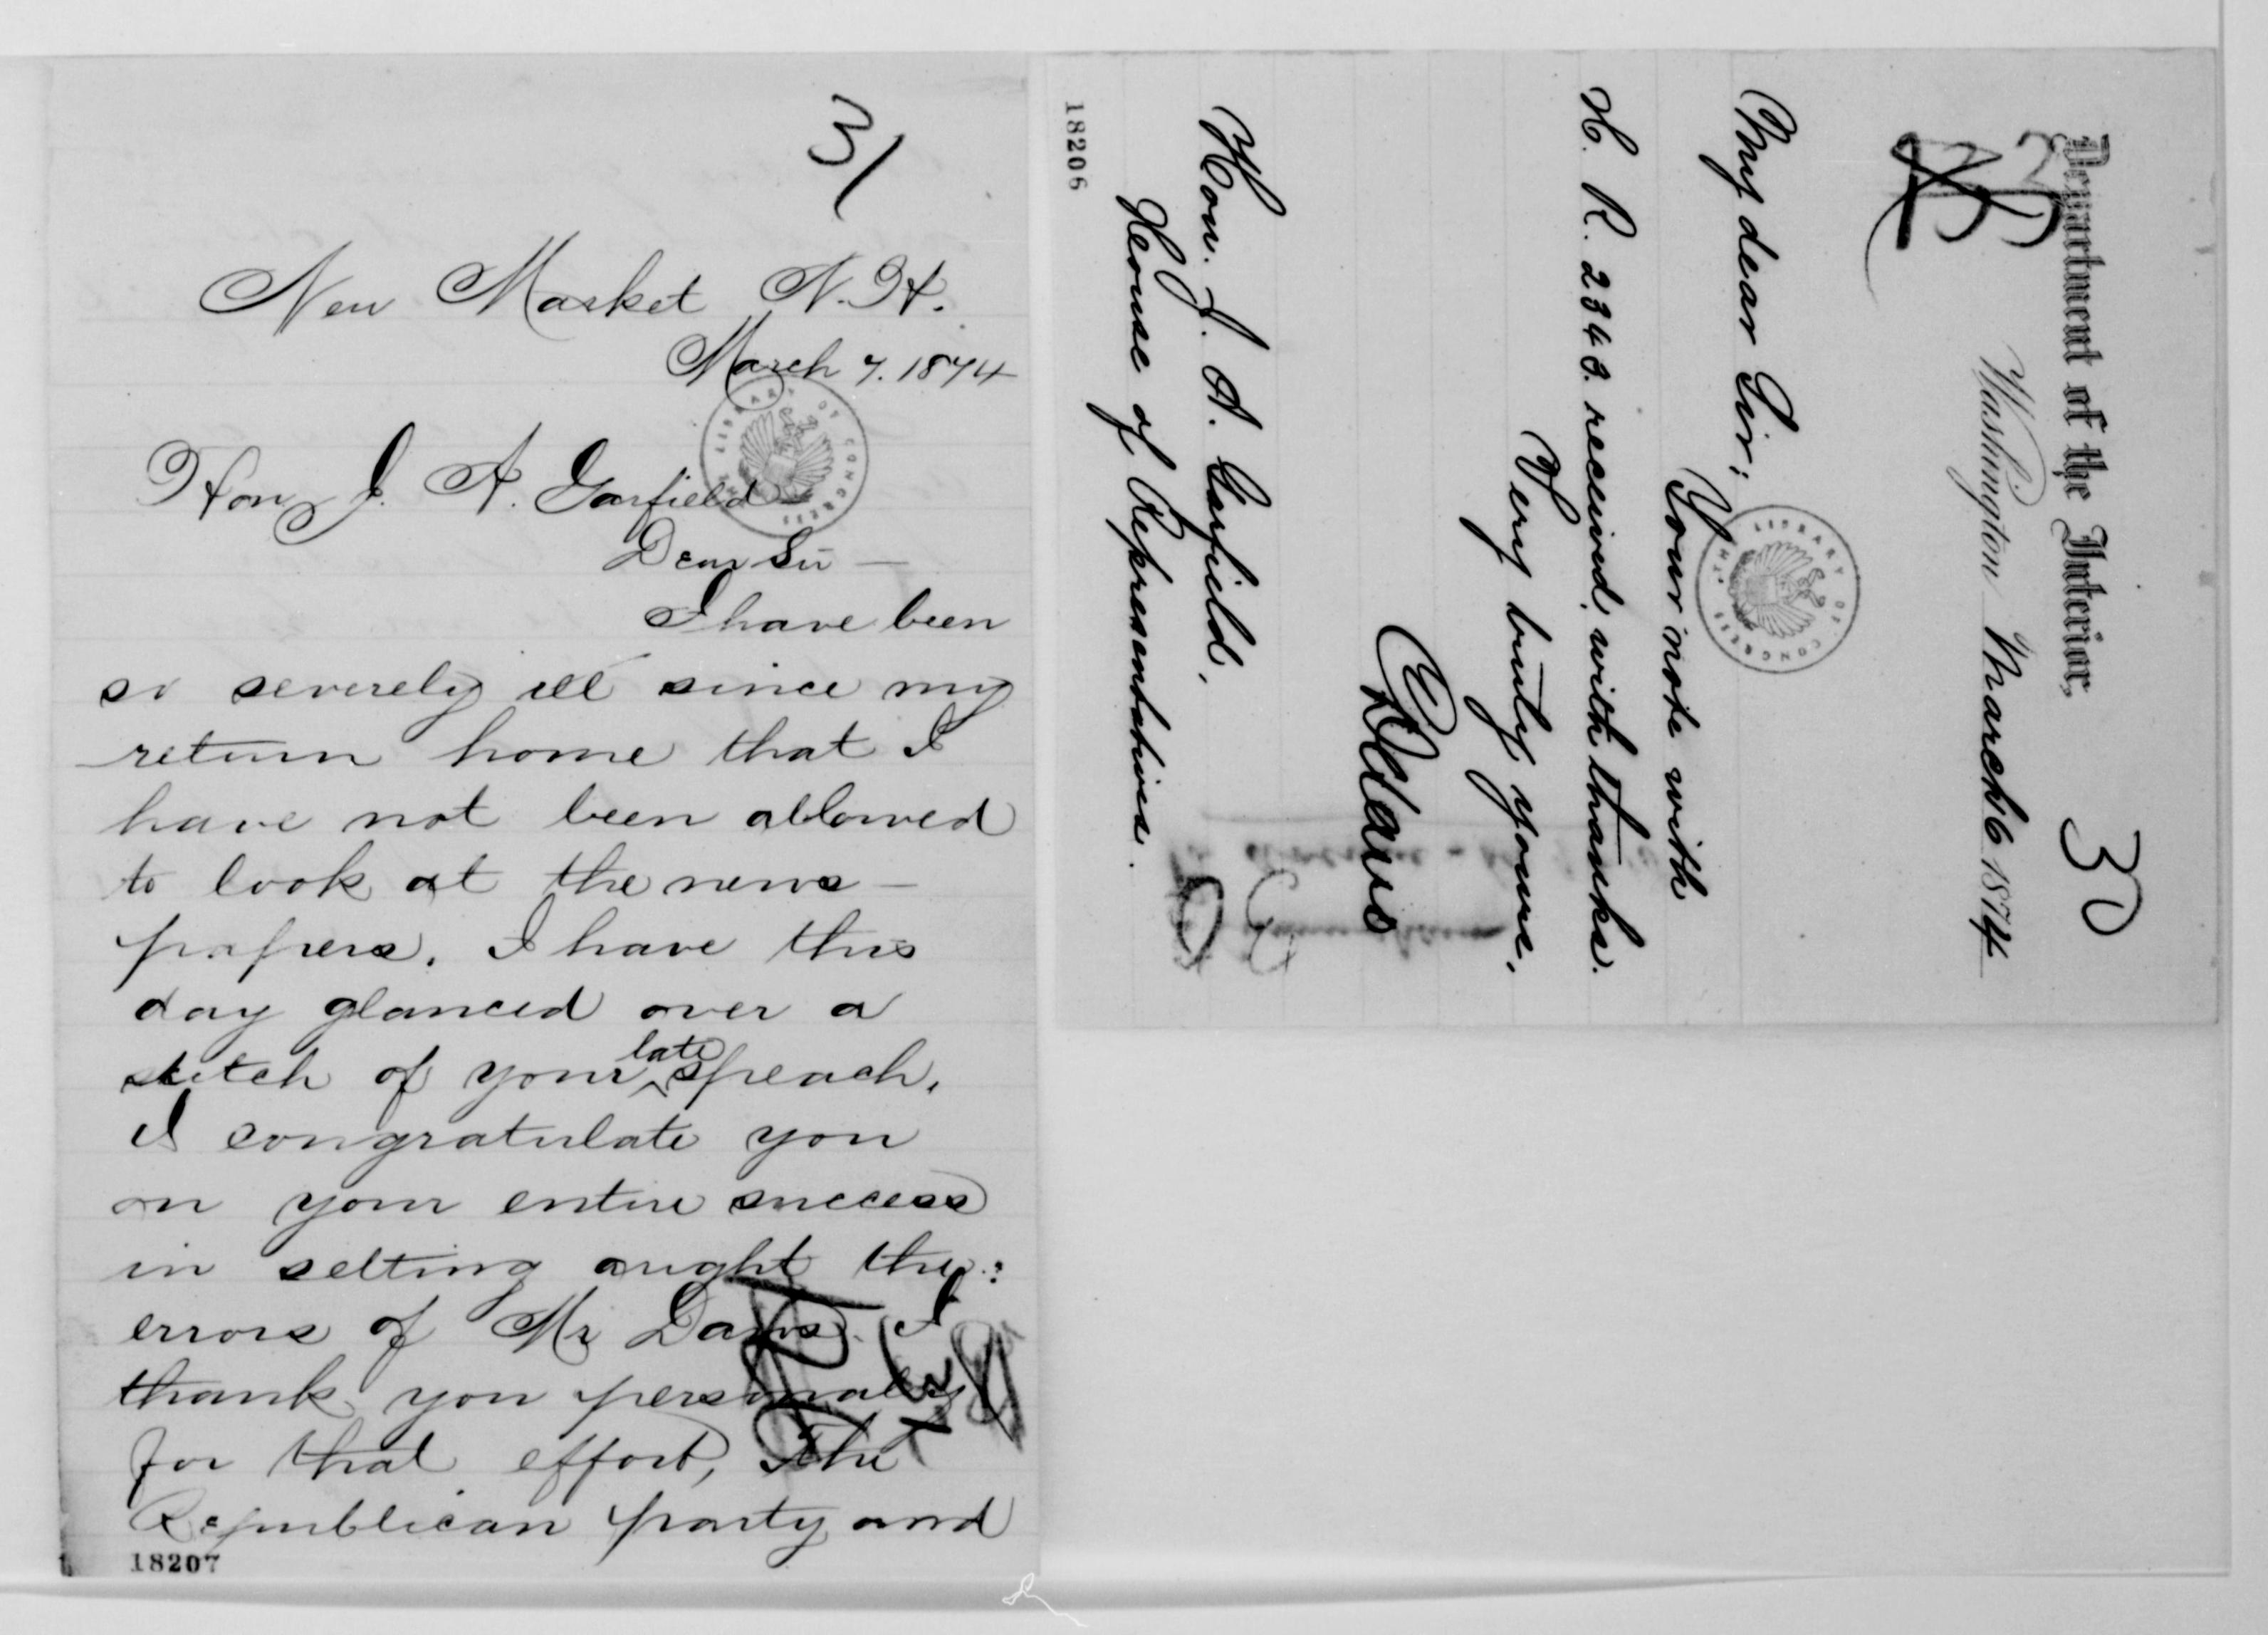 31
New Market N.H.
March 7. 1874
Hon J. A. Garfield
Dear Sir —
I have been
so severely ill since my
return home that I
have not been allowed
to look at the news-
papers. I have this
day glanced over a
sketch of your late speach.
I congratulate you
on your entire success
in setting aright the
errors of Mr Daws. I
thank you personally
for that effort, The
Republican party and
18207
30
Department of the Interior,
Washington March 6 1874
My dear Sir:
Your note with
H. R. 2343. received, with thanks.
Very truly yours,
Hon. J. A. Garfield,
House of Representatives.
18206
THE LIBRARY OF CONGRESS
THE LIBRARY OF CONGRESS